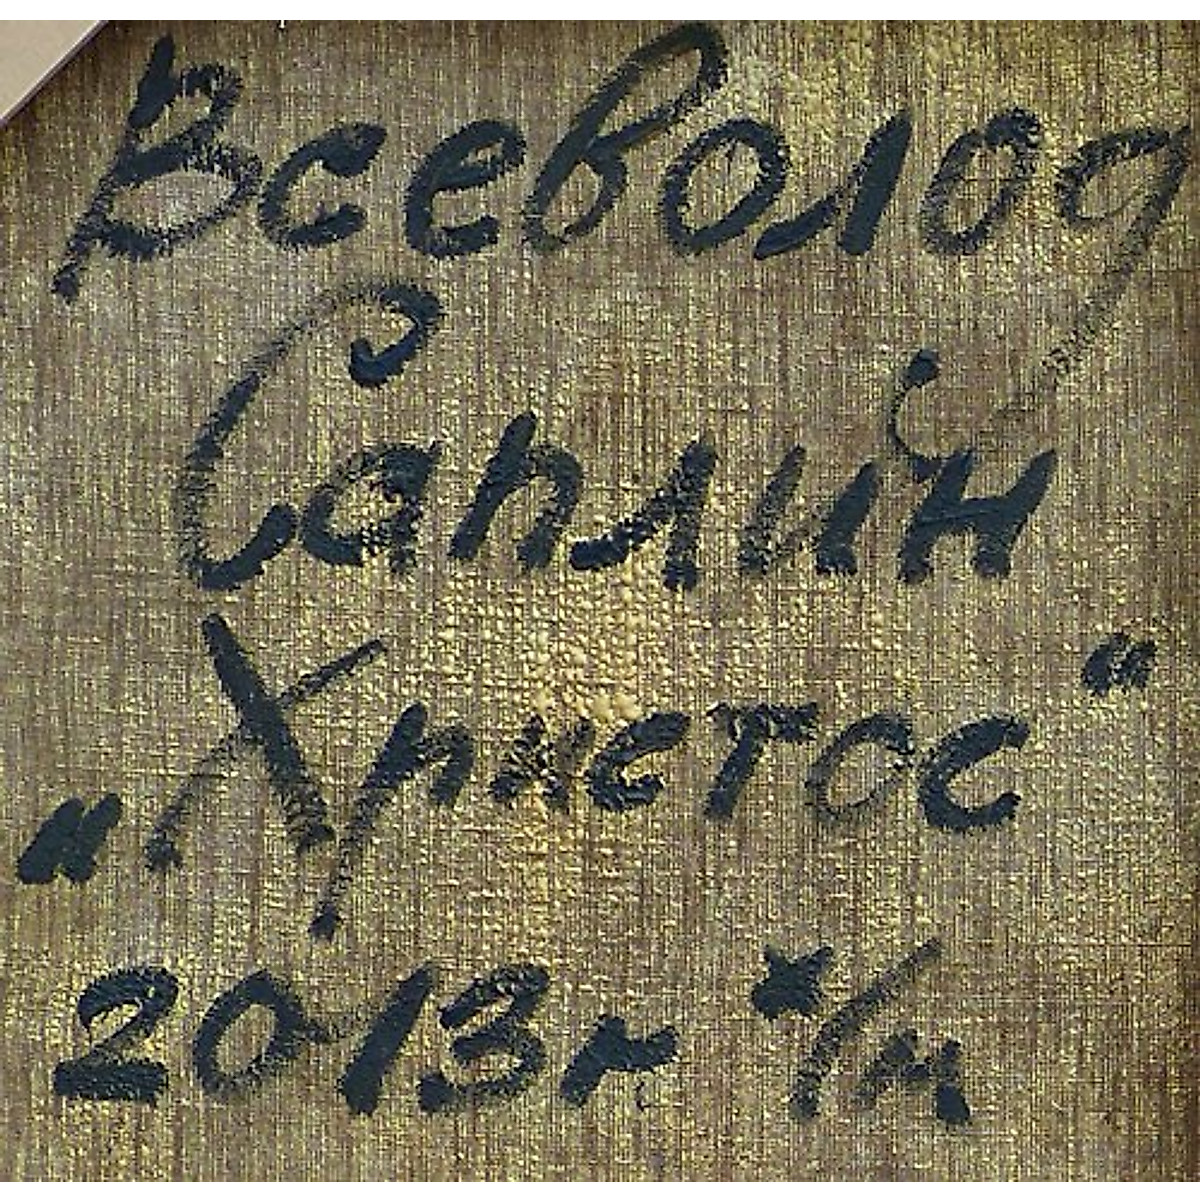 Всеволод
Саплин
"Христос"
2013г х/м